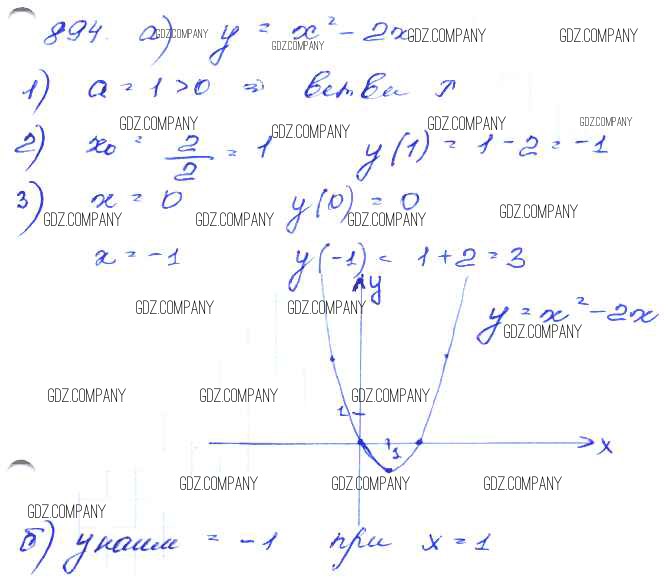 894. а) y = x² - 2x
GDZ.COMPANY GDZ.COMPANY GDZ.COMPANY GDZ.COMPANY
1) a = 1 > 0 => ветви ↑
GDZ.COMPANY GDZ.COMPANY GDZ.COMPANY GDZ.COMPANY
2) x₀ = 2/2 = 1 y(1) = 1 - 2 = -1
3) x = 0 y(0) = 0
GDZ.COMPANY GDZ.COMPANY GDZ.COMPANY GDZ.COMPANY
x = -1 y(-1) = 1 + 2 = 3
y
GDZ.COMPANY GDZ.COMPANY
y = x² - 2x
GDZ.COMPANY
GDZ.COMPANY GDZ.COMPANY GDZ.COMPANY
1
1 x
GDZ.COMPANY GDZ.COMPANY GDZ.COMPANY
GDZ.COMPANY
б) y наим = -1 при x = 1